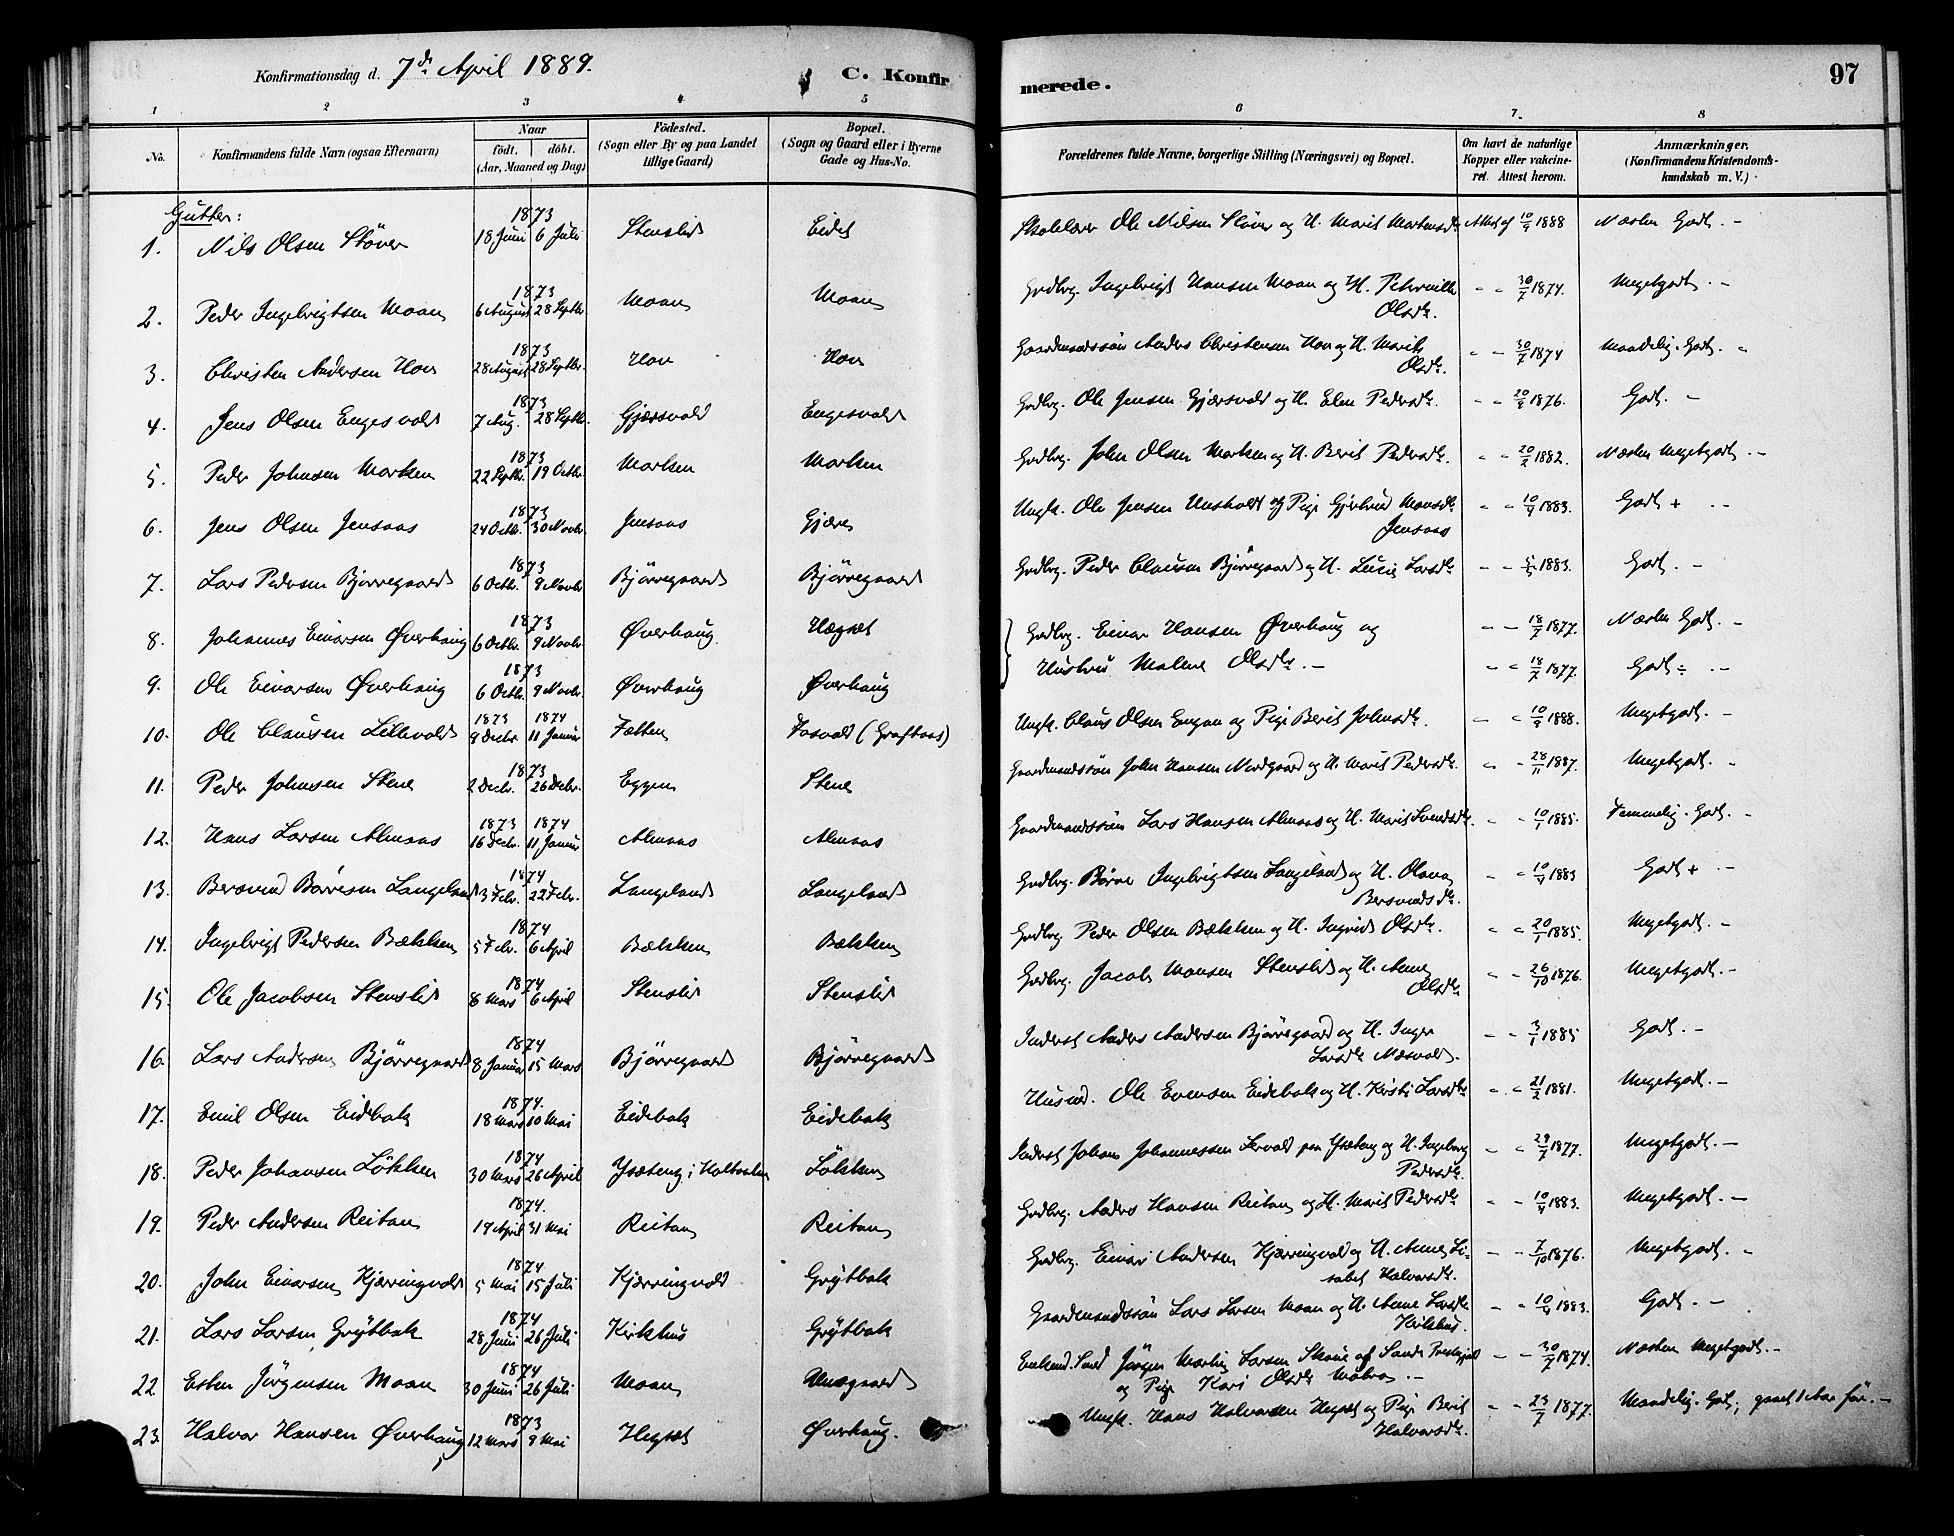 Konfirmationsdag d. 7de April 1889.
C. Konfir
merede.
97
1 2 3 4 5 6 7. 8
No.
Konfirmandens fulde Navn (ogsaa Efternavn)
Naar
födt. döbt.
(Aar, Maaned og Dag)
Födested.
(Sogn eller By og paa Landet
tillige Gaard)
Bopæl.
(Sogn og Gaard eller i Byerne
Gade og Hus-No.
Forældrenes fulde Navne, borgerlige Stilling (Næringsvei) og Bopæl.
Om havt de naturlige
Kopper eller vakcine-
ret. Attest herom.
Anmærkninger.
(Konfirmandens Kristendoms-
kundskab m. V.)
Gutter:
1. Nils Olsen Støver 1873 18 Juni 6 Juli Stenslid Eidet Skolelærer Ole Nilsen Støver og H. Marit Mortensdtr. Attest af 10/9 1888 Næsten Godt. -
2. Peder Ingebrigtsen Moan 1873 6 August 28 Septbr. Moan Moan Grdbrg. Ingebrigt Hansen Moan og H. Peternille
Olsdtr. " " 30/7 1874. Megetgodt. -
3. Christen Andersen Hov 1873 28 August 28 Septbr. Hov Hov Gaardmandssön Anders Christensen Hov og H. Marit
Olsdtr. " " 30/7 1874 Maadelig. Godt. "
4. Jens Olsen Engesvold 1873 7 Aug. 28 Septbr. Gjærsvold Engesvold Grdbrg. Ole Jensen Gjærsvold og H. Elen Pedersdtr. " " 1876. Godt. -
5. Peder Johnsen Morken 1873 22 Septbr. 19 Octbr. Morken Morken Grdbrg. John Olsen Morken og H. Berit Pedersdtr. " " 20/2 1882. Næsten Megetgodt. -
6. Jens Olsen Jensaas 1873 24 Octbr. 30 Novbr. Jensaas Gjære Ungk. Ole Jensen og Pige Monsdtr.
Jensaas - " 10/9 1883. Godt + -
7. Lars Pedersen Bjørregaard 1873 6 Octbr. 9 Novbr Bjørregaard Bjørregaard Grdbrg. Peder Clausen Bjørregaard og H. Lucie Larsdtr. " " 1883. Godt. -
8. Johannes Einarsen Øverhaug 1873 6 Octbr. 9 Novbr. Øverhaug. Hægset Grdbrg. Einar Hansen Øverhaug og - - 18/7 1877. Næsten Godt. -
9. Ole Einarsen Øverhaug 1873 6 Octbr. 9 Novbr. Øverhaug Øverhaug Hustru Malene Olsdtr. - " " 18/7 1877. Godt -
10. Ole Clausen Lillevold 1873 9 Decbr. 1874 11 Januar Fætten Fosvold Ungk. Claus Olsen Engan og Pige Berit Johnsdtr. - " 10/9 1888. Megetgodt. -
11. Peder Johnsen Stene 1873 2 Decbr. 26 Decbr. Eggen Stene Gaardmandssön John Hansen Nordgaard og H. Marit Pedersdtr. " - 28/11 1887. Megetgodt. -
12. Hans Larsen Almaas 1873 16 Decbr. 1874 11 Januar Almaas Almaas Gaardmandssön Lars Hansen Almaas og H. Marit " - 10/1 1885. Temmelig. Godt. -
13. Bersvend Børresen Langeland 1874 3 Febr. 22 Febr. Langeland Langeland Grdbrg. Børre Ingebrigtsen Langeland og H. Olava
Bersvendsdtr. " " 10/9 1883 Godt + -
14. Ingebrigt Pedersen Bækken 1874 5 Febr. 6 April Bækken Bækken Grdbrg. Peder Olsen Bækken og H. Ingrid Olsdtr. " " 20/1 1885. Megetgodt. -
15. Ole Jacobsen Stenslid 1874 8 Mars 6 April Stenslid Stenslid Grdbrg. Jacob Monsen Stenslid og H. Anne
Olsdtr. " " 26/10 1876. Megetgodt. -
16. Lars Andersen Bjørregaard 1874 8 Januar 15 Mars Bjørregaard Bjørregaard Inderst Anders Andersen Bjørregaard og H. Inger
Larsdtr. Næsvold. - " 3/1 1885 Godt. -
17. Emil Olsen Eidebak 1874. 18 Mars 10 Mai Eidebak Eidebak Husmd. Ole Evensen Eidebak og H. Kirsti Larsdtr. " " 21/2 1881. Megetgodt. -
18. Peder Johansen Løkken 1874 30 Mars 26 April Ysæteng i Holtaalen Løkken Inderst Johan Johannessen paa Ysæteng og H. Ingeborg
Pedersdtr. " - 1877. Megetgodt. -
19. Peder Andersen Reitan 1874. 19 April 31 Mai Reitan Reitan Grdbrg. Anders Hansen Reitan og H. Marit Pedersdtr. " - 10/9 1883. Megetgodt. -
20. John Einarsen Kjærringvold 1874 5 Mai 15 Juli Kjærringvold Grøtbak Grdbrg. Einar Andersen Kjærringvold og H. Anne Li-
sabet Halvorsdtr. - - 7/10 1876. Megetgodt. "
21. Lars Larsen Grøtbak 1874 28 Juni 26 Juli Kirkhus Grøtbak Gaardmandssön Lars Larsen Moan og H. Anne Larsdtr.
Kirkhus. - " 10/9 1883. Godt. -
22 Esten Jørgensen Moan 1874 30 Juni 26 Juli Moan Enkemd. Smed Jørgen Martin Larsen af Præstegjeld
og Pige Kari Olsdtr. - - - 30/7 1874. Næsten Megetgodt. -
23. Halvor Hansen Øverhaug 1873 12 Mars 9 Mai Hegset Øverhaug. Ungk. Hans Halvorsen Hegset og Pige Berit
Halvorsdtr. " - 23/7 1877. Maadelig. Godt; gaaet 1 Aar før. -